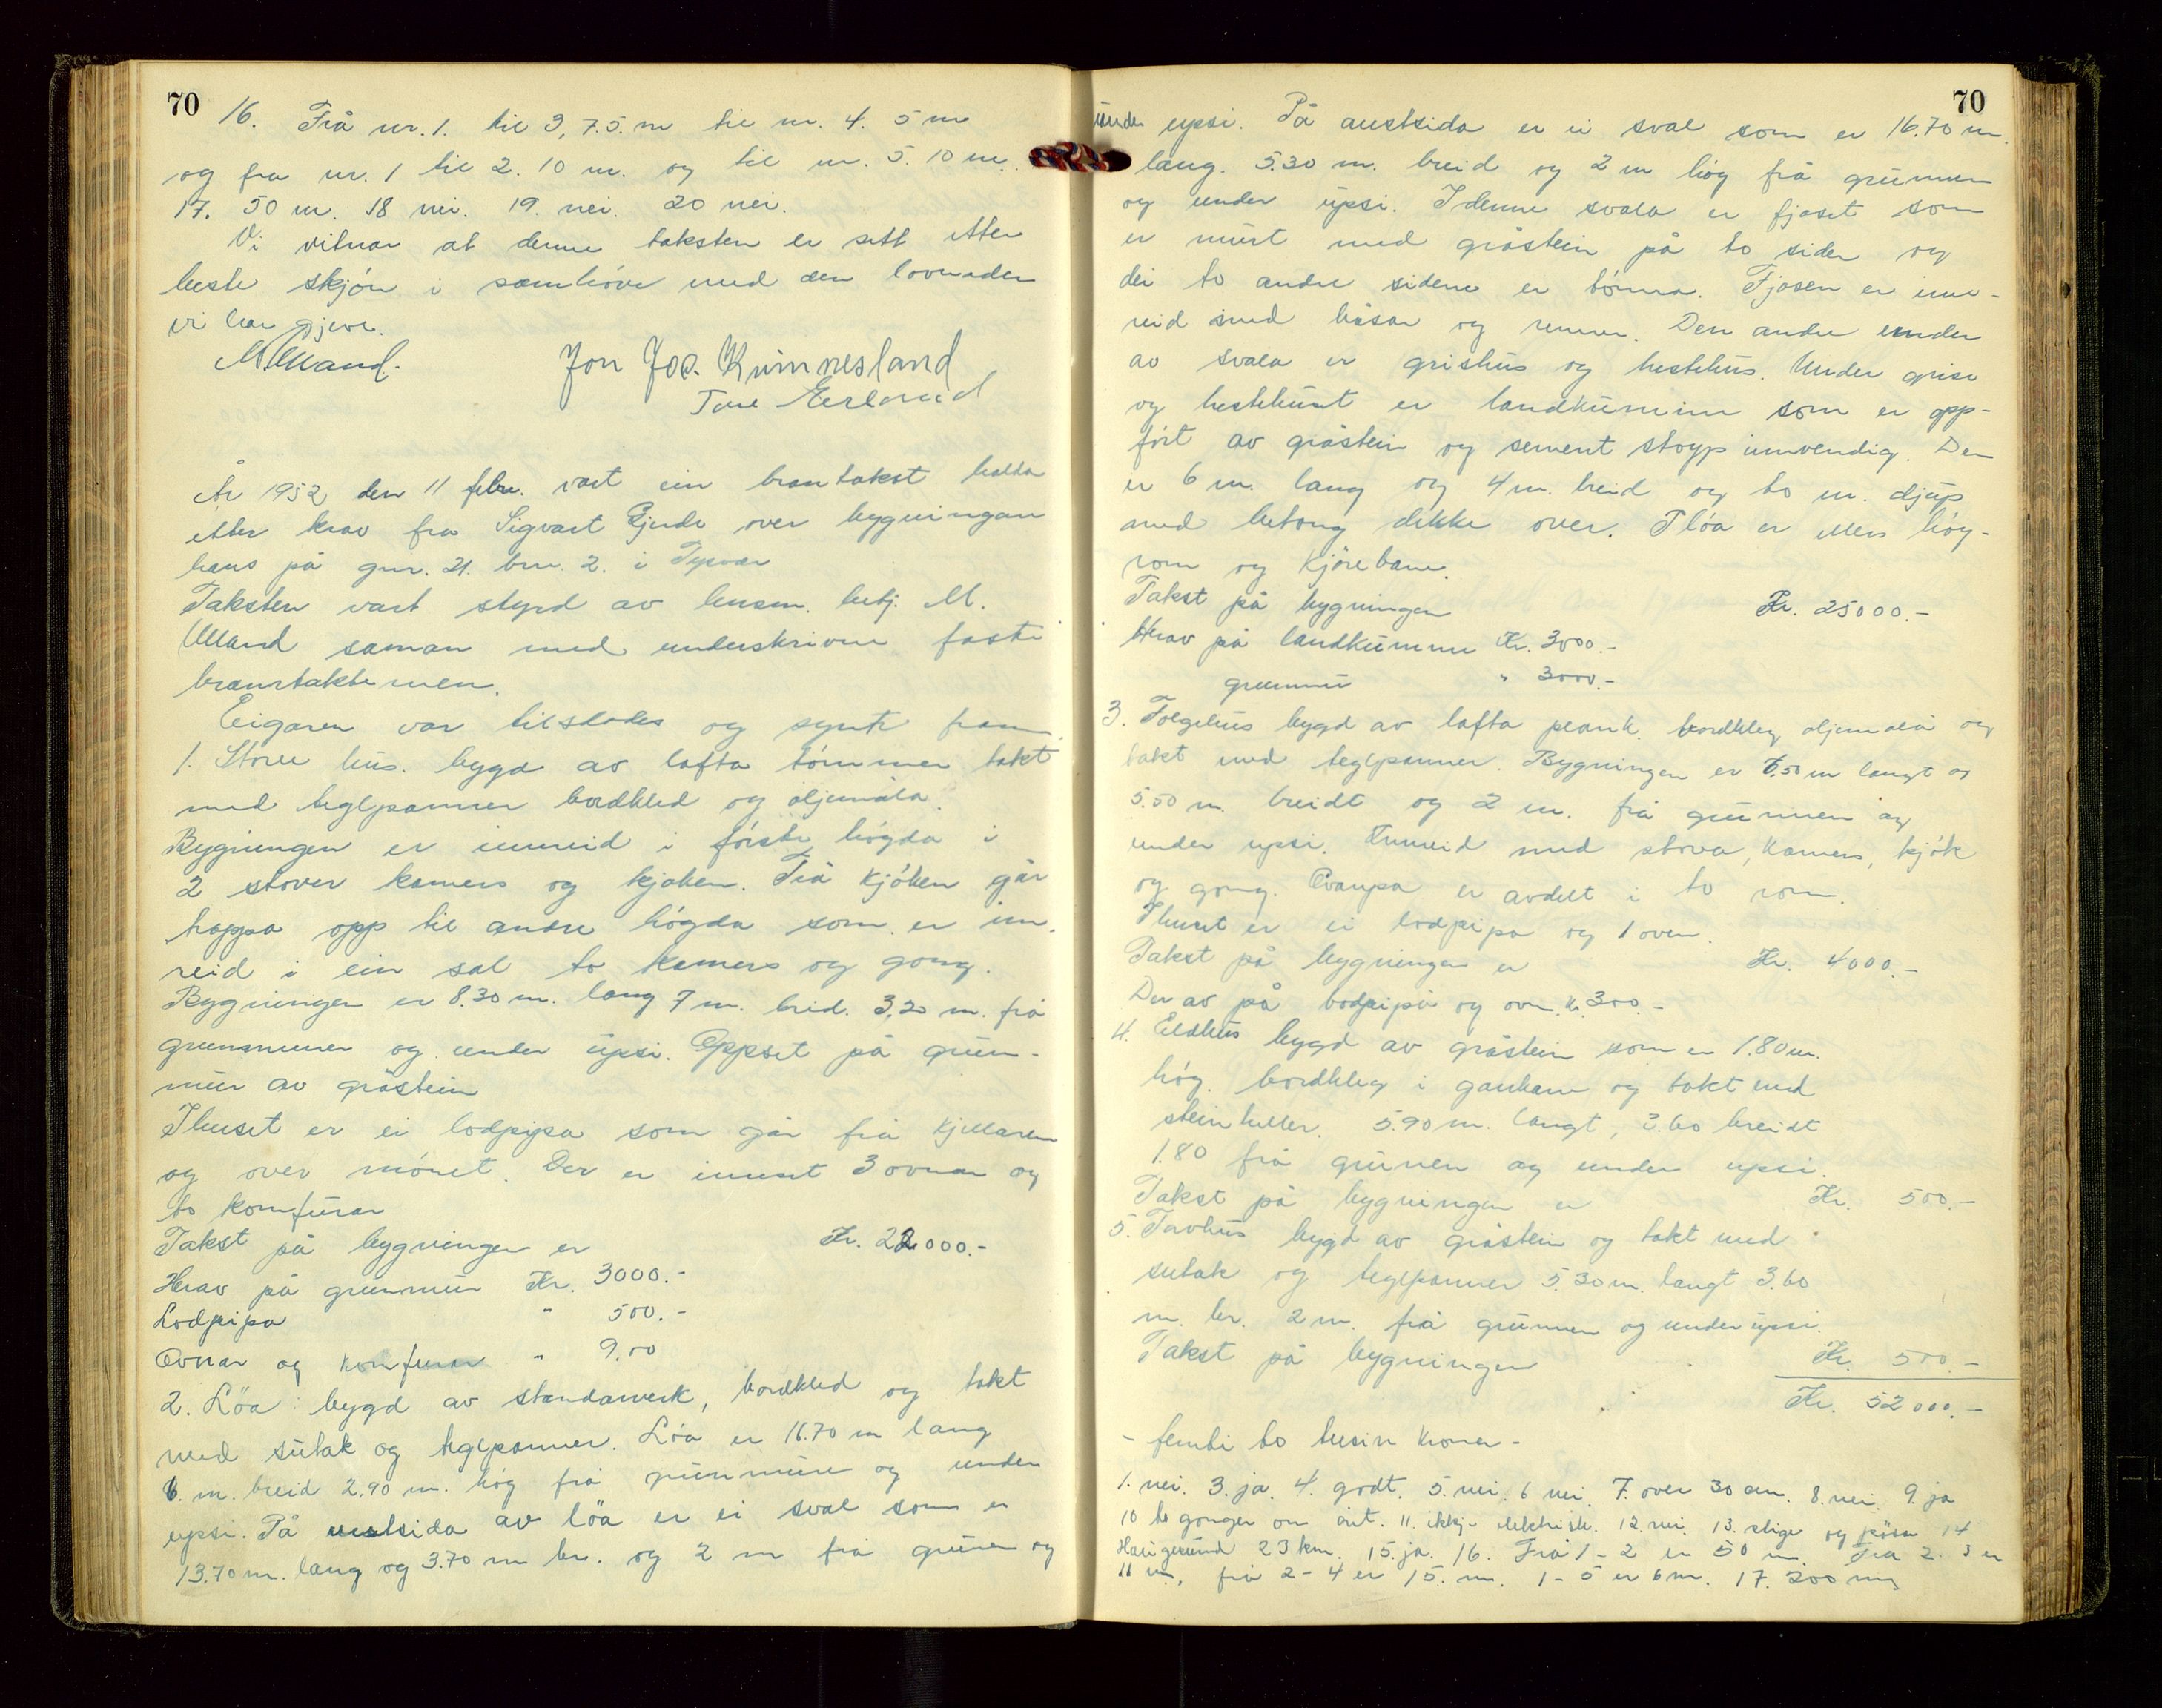 70
16. Frå nr. 1. til 3, 7.5. m til nr. 4. 5 m
og fra nr. 1 til 2. 10 m. og til nr. 5. 10 m.
17. 50 m. 18 nei. 19. nei. 20 nei.
Vi vitnar at denne taksten er sett etter
beste skjön i samhöve med den lovnaden
vi har gjeve.
M. Ulland. Jon Joa. Kvinnesland
Tore
År 1952 den 11 febr. vart ein brantakst halden
etter krav fra Sigvart Gjerde over bygningan
hans på gnr. 21. brn. 2. i Tysvær
Taksten vart styrd av lensm. betj. M.
Ulland saman med underskrivne faste
branntaktsmen.
Eigaren var tilstades og synte fram
1. Store hus. bygd av lafta tömmer takt
med teglpanner bordkled og oljemåla.
Bygningen er innreid i förste högda i
2 stover kamers og kjøken. Frå kjöken går
trappa opp til andre högda som er inn.
reid i ein sal to kamers og gong.
Bygningen er 8.30 m. lang 7 m. breid. 3.20 m. frå
grunnmuren og under upsi. Oppset på grun-
mur av gråstein
I huset er ei lodpipa som går frå kjellaren
og over mönet. Der er innsat 3 ovnar og
to komfurar
Takst på bygningen er Kr. 22000.-
Herav på grunmur Kr. 3000.-
Lodpipa " 500.-
Ovnar og komfurar " 9.00
2. Löa bygd av standarverk, bordkled og takt
med sutak og teglpanner. Löa er 16.70 m lang
6. m. breid 2.90 m. hög frå grunmuren og under
upsi. På vestsida av löa er ei sval som er
13.70 m. lang og 3.70 m br. og 2 m frå grunen og
70
under upsi. På austsida er ei sval som er 16.70 m.
lang. 5.30 m. breid og 2 m hög frå grunnen
og under upsi. I denne svala er fjoset som
er murt med gråstein på to sider og
dei to andre sidene er tömra. Fjosen er inn-
reid med båsar og renner. Den andre enden
av svala er grishus og hestehus. Under grise
og hestehuset er landkummen som er opp-
fört av gråstein og sement stoyp innvendig. Den
er 6 m. lang og 4 m. breid og to m. djup
med betong dekke over. I löa er elles höy-
rom og kjörebane.
Takst på bygningen Kr. 25000.-
Herav på landkumme Kr. 3000.-
grunmur " 3000.-
3. Folgehus bygd av lafta plank. bordkleg oljemåla og
takt med teglpanner. Bygningen er 6.50 m langt og
5.50 m. breidt og 2 m. frå grunnen og
under upsi. Innreid med stova, kamers, kjök
og gong. Ovanpa er avdelt i to rom.
I huset er ei lodpipa og 1 oven.
Takst på bygningen er Kr. 4000.-
Der av på lodpipa og ovn. kr. 300.-
4. Eldhus bygd av gråstein som er 1.80 m.
hög. bordkleg i gavlane og takt med
steinheller. 5.90 m. langt, 3.60 breidt
1.80 frå grunen og under upsi.
Takst på bygningen er Kr. 500.-
5. Torvhus bygd av gråstein og takt med
sutak og teglpanner 5.30 m. langt 3.60
m. br. 2 m. frå grunnen og under upsi.
Takst på bygningen Kr. 500.-
Kr. 52000.-
- femti to tusin kroner -
1. nei. 3. ja. 4. godt. 5. nei. 6 nei. 7. over 30 cm. 8. nei. 9. ja
10 to gonger om året. 11. ikkje elektrisk. 12. nei. 13. stige og pøser 14
Haugesund 23 km. 15. ja. 16. Frå 1 - 2 er 50 m. Fra 2. 3 er
11 m, frå 2 - 4 er 15. m. 1 - 5 er 6 m. 17. 200 m